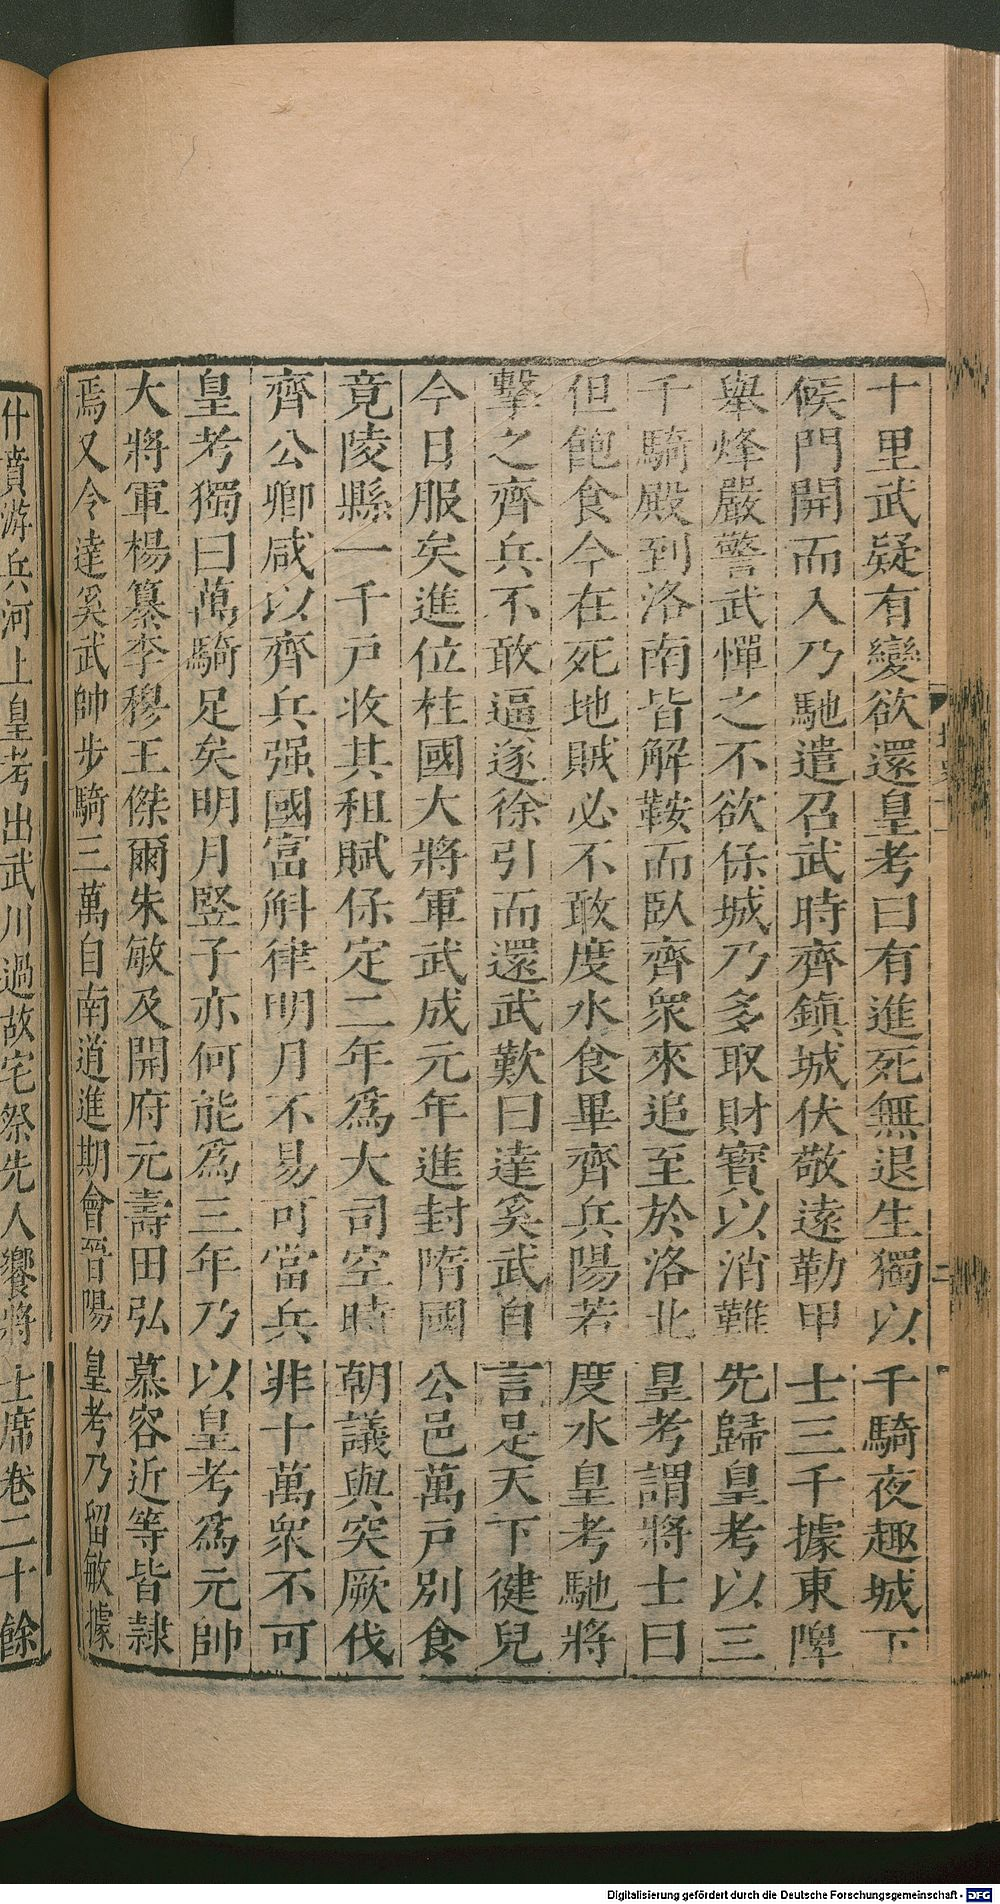 十里武疑有變欲還皇考曰有進死無退生獨以千騎夜趣城下
候門開而入乃馳遣召武時齊鎮城伏敬遠勒甲士三千據東陴
舉烽嚴警武憚之不欲保城乃多取財寶以消難先歸皇考以三
千騎殿到洛南皆解鞍而臥齊衆來追至於洛北皇考謂將士曰
但飽食今在死地賊必不敢度水食畢齊兵陽若度水皇考馳將
擊之齊兵不敢逼遂徐引而還武歎曰達奚武自言是天下健兒
今日服矣進位柱國大將軍武成元年進封隋國公邑萬戶別食
竟陵縣一千戶收其租賦保定二年爲大司空時朝議與突厥伐
齊公卿咸以齊兵强國富斛律明月不易可當兵非十萬衆不可
皇考獨曰萬騎足矣明月竪子亦何能爲三年乃以皇考爲元帥
大將軍楊纂李穆王傑爾朱敏及開府元壽田弘慕容近等皆隷
焉又令達奚武帥步騎三萬自南道進期會晉陽皇考乃留敏據
什賁游兵河上皇考出武川過故宅祭先人饗將士席卷二十餘
Digitalisierung gefördert durch die Deutsche Forschungsgemeinschaft - DFG